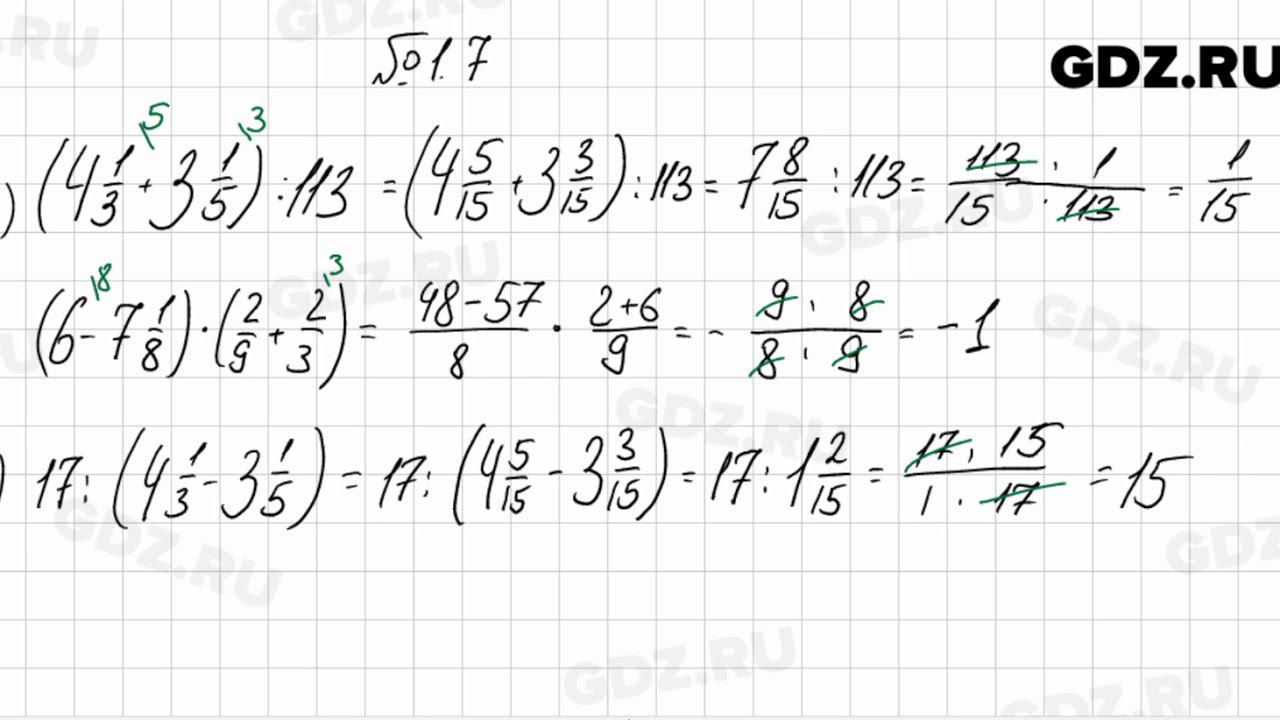 № 1.7
GDZ.RU
) (4 1/3 + 3 1/5) : 113 = (4 5/15 + 3 3/15) : 113 = 7 8/15 : 113 = 113 · 1 / 15 · 113 = 1/15
(6 - 7 1/8) · (2/9 + 2/3) = 48 - 57 / 8 · 2 + 6 / 9 = - 9 · 8 / 8 · 9 = -1
) 17 : (4 1/3 - 3 1/5) = 17 : (4 5/15 - 3 3/15) = 17 : 1 2/15 = 17 · 15 / 1 · 17 = 15